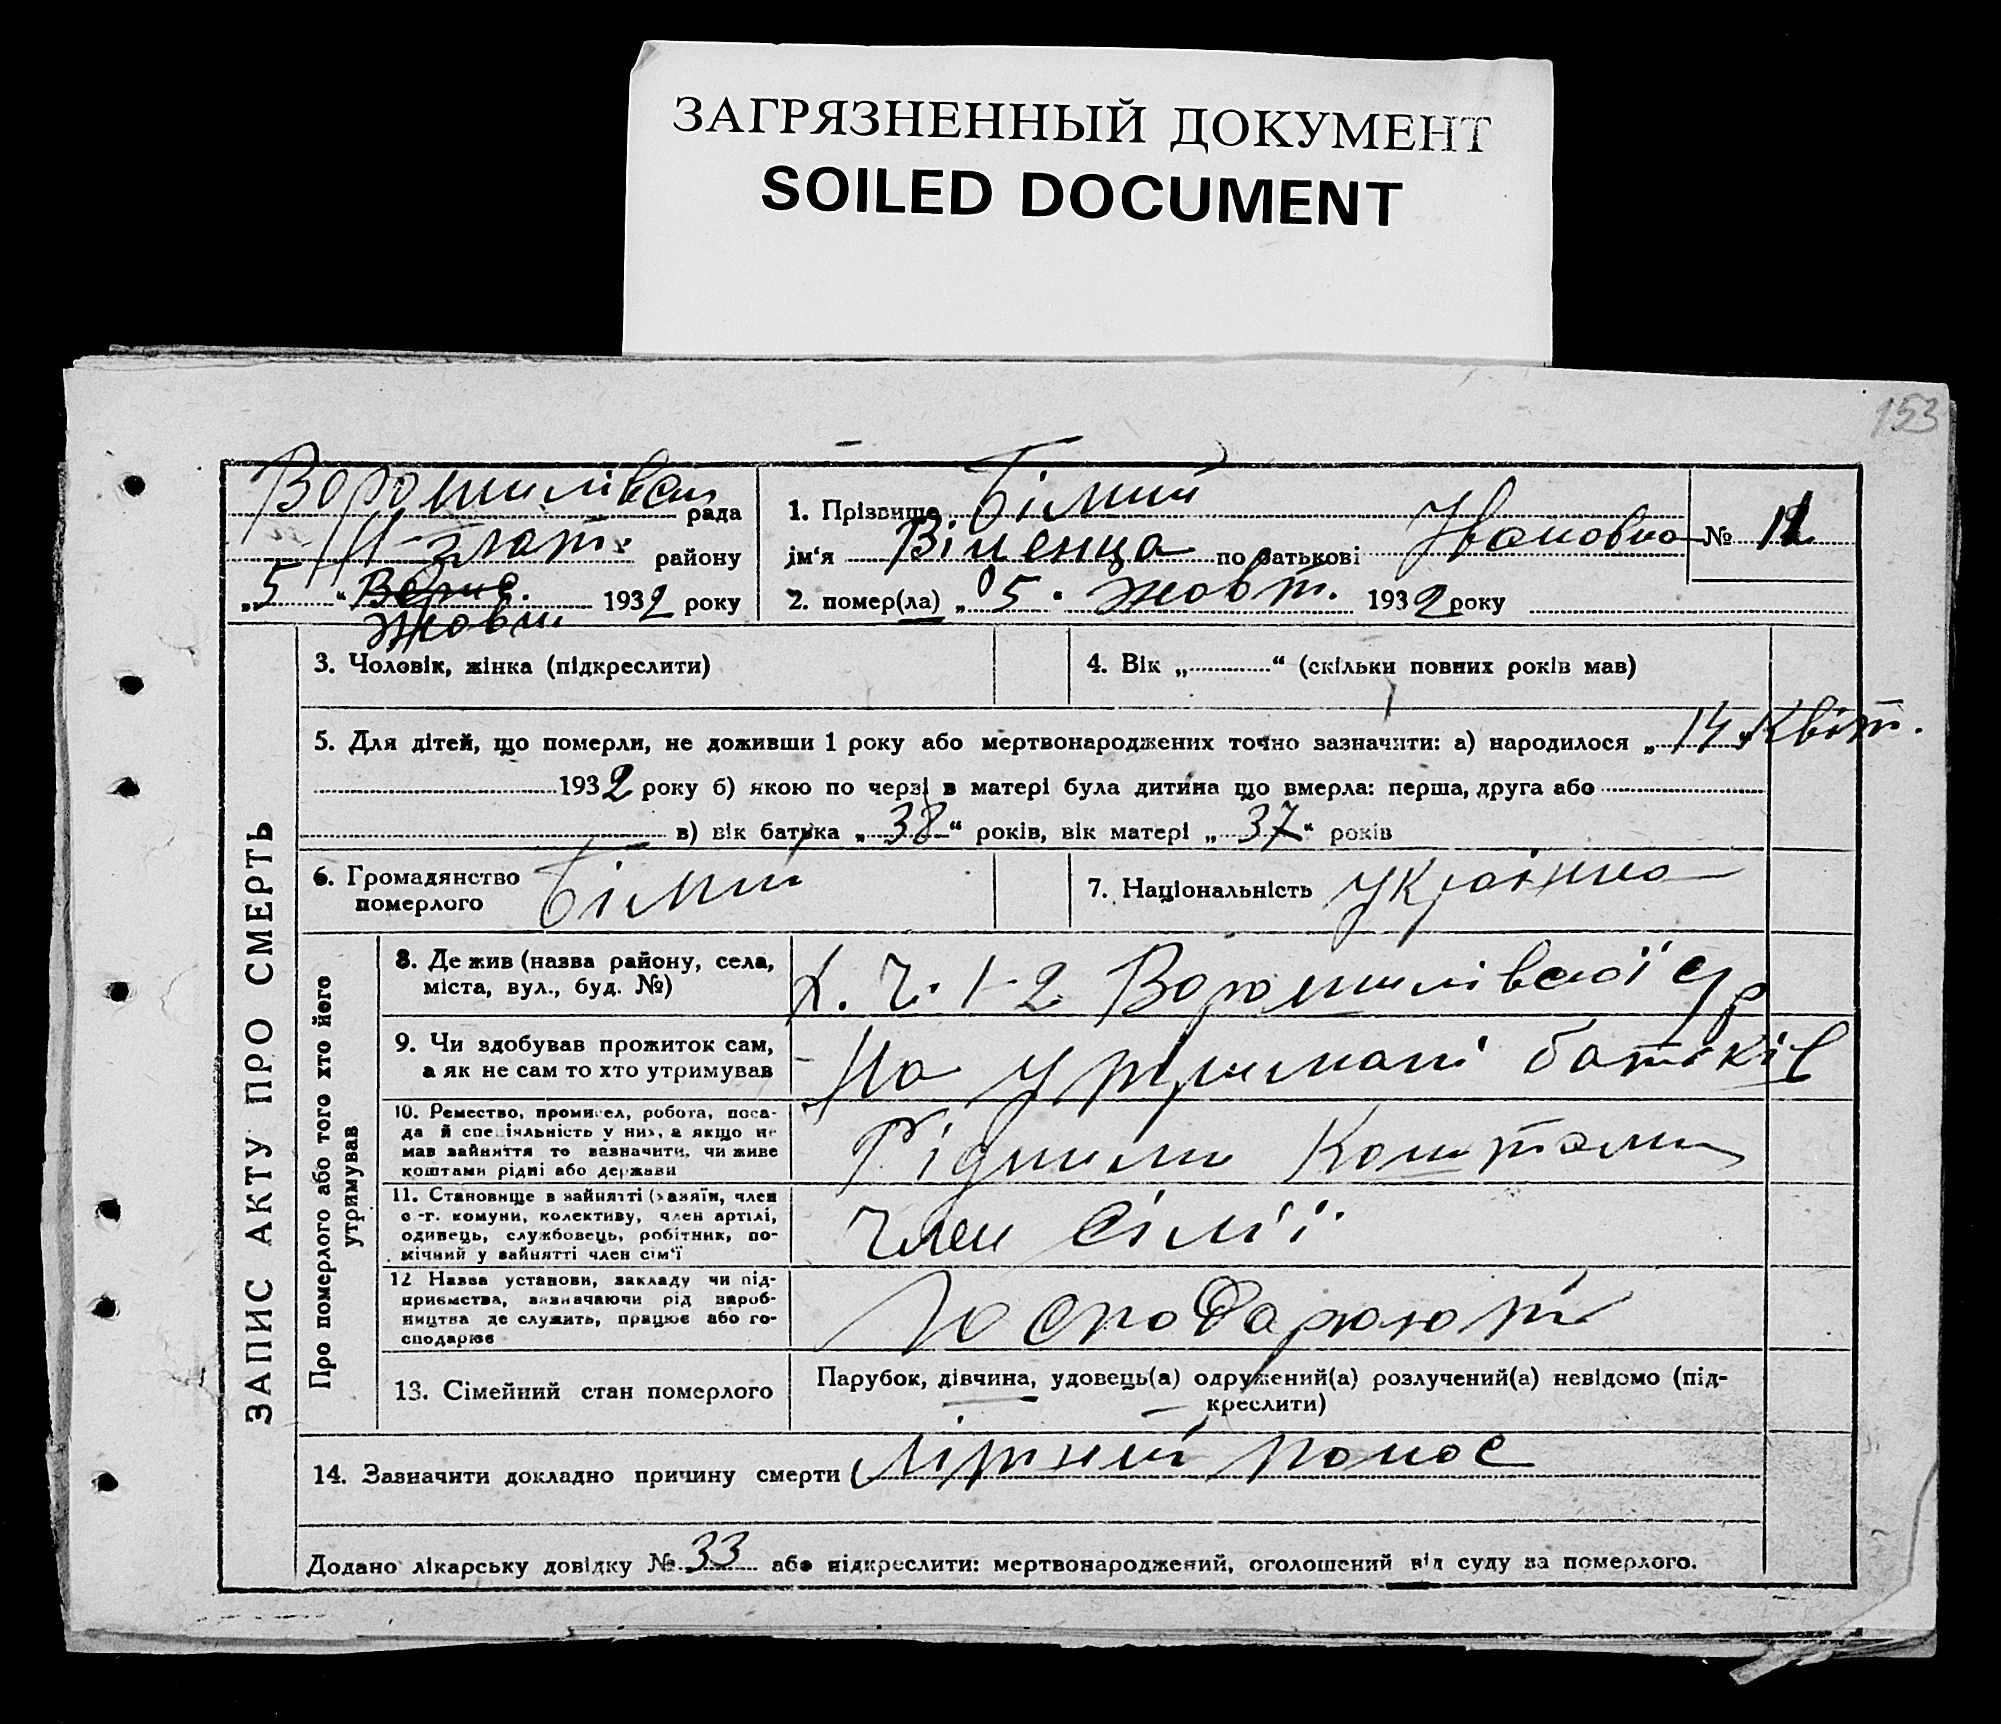 ЗАГРЯЗНЕННЫЙ ДОКУМЕНТ
SOILED DOCUMENT
153
рада
району
„5“ Жовт 1932 року
1. Прізвище Білий
ім‘я по батькові Івановна
№ 12
2. помер(ла) „05“ жовт. 1932 року
ЗАПИС АКТУ ПРО СМЕРТЬ
3. Чоловік, жінка (підкреслити)
4. Вік „ “ (скільки повних років мав)
5. Для дітей, що померли, не доживши 1 року або мертвонароджених точно зазначити: а) народилося „14“ Квіт.
1932 року б) якою по черзі в матері була дитина що вмерла: перша, друга або
в) вік батька „38“ років, вік матері „37“ років
6. Громадянство
померлого Білий
7. Національність Українка
Про померлого або того хто його
утримував
8. Де жив (назва району, села,
міста, вул., буд. №)
1-2 Ворошилівської с/р
9. Чи здобував прожиток сам,
а як не сам то хто утримував
На утримані батьків
10. Ремество, промисел, робота, поса-
да й спеціяльність у них, а якщо не
мав зайняття то зазначити, чи живе
коштами рідні або держави
Рідними Коштами
11. Становище в зайнятті (хазяїн, член
с.-г. комуни, колективу, член артілі,
одинець, службовець, робітник, по-
мічний у зайнятті член сім‘ї
Член сімії
12 Назва установи, закладу чи під-
приємства, зазначаючи рід вироб-
ництва де служить, працює або го-
сподарює
Господарюють
13. Сімейний стан померлого
Парубок, дівчина, удовець(а) одружений(а) розлучений(а) невідомо (під-
креслити)
14. Зазначити докладно причину смерти літний понос
Додано лікарську довідку № 33 або підкреслити: мертвонароджений, оголошений від суду за померлого.